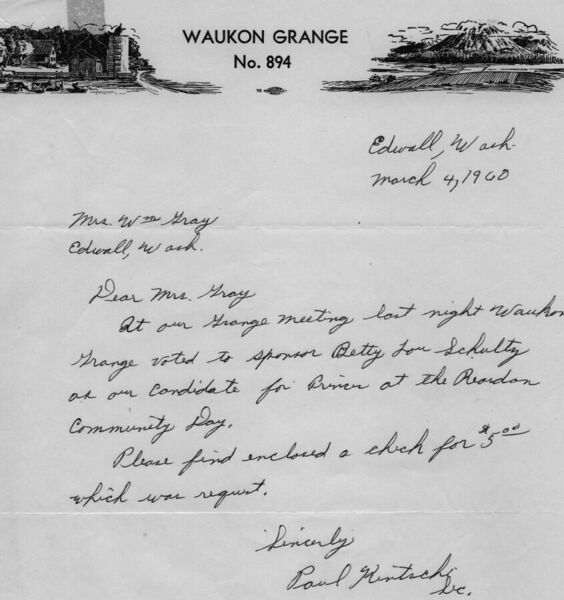 WAUKON GRANGE
No. 894
Edwall, Wash.
March 4, 1960
Mrs. Wm Gray
Edwall, Wash.
Dear Mrs. Gray
At our Grange meeting last night Waukon
Grange voted to sponsor Betty Lou Schultz
as our candidate for Princes at the Reardan
Community Day.
Please find enclosed a check for $5.00
which was request.
Sincerly
Paul Kintschi
Sec.